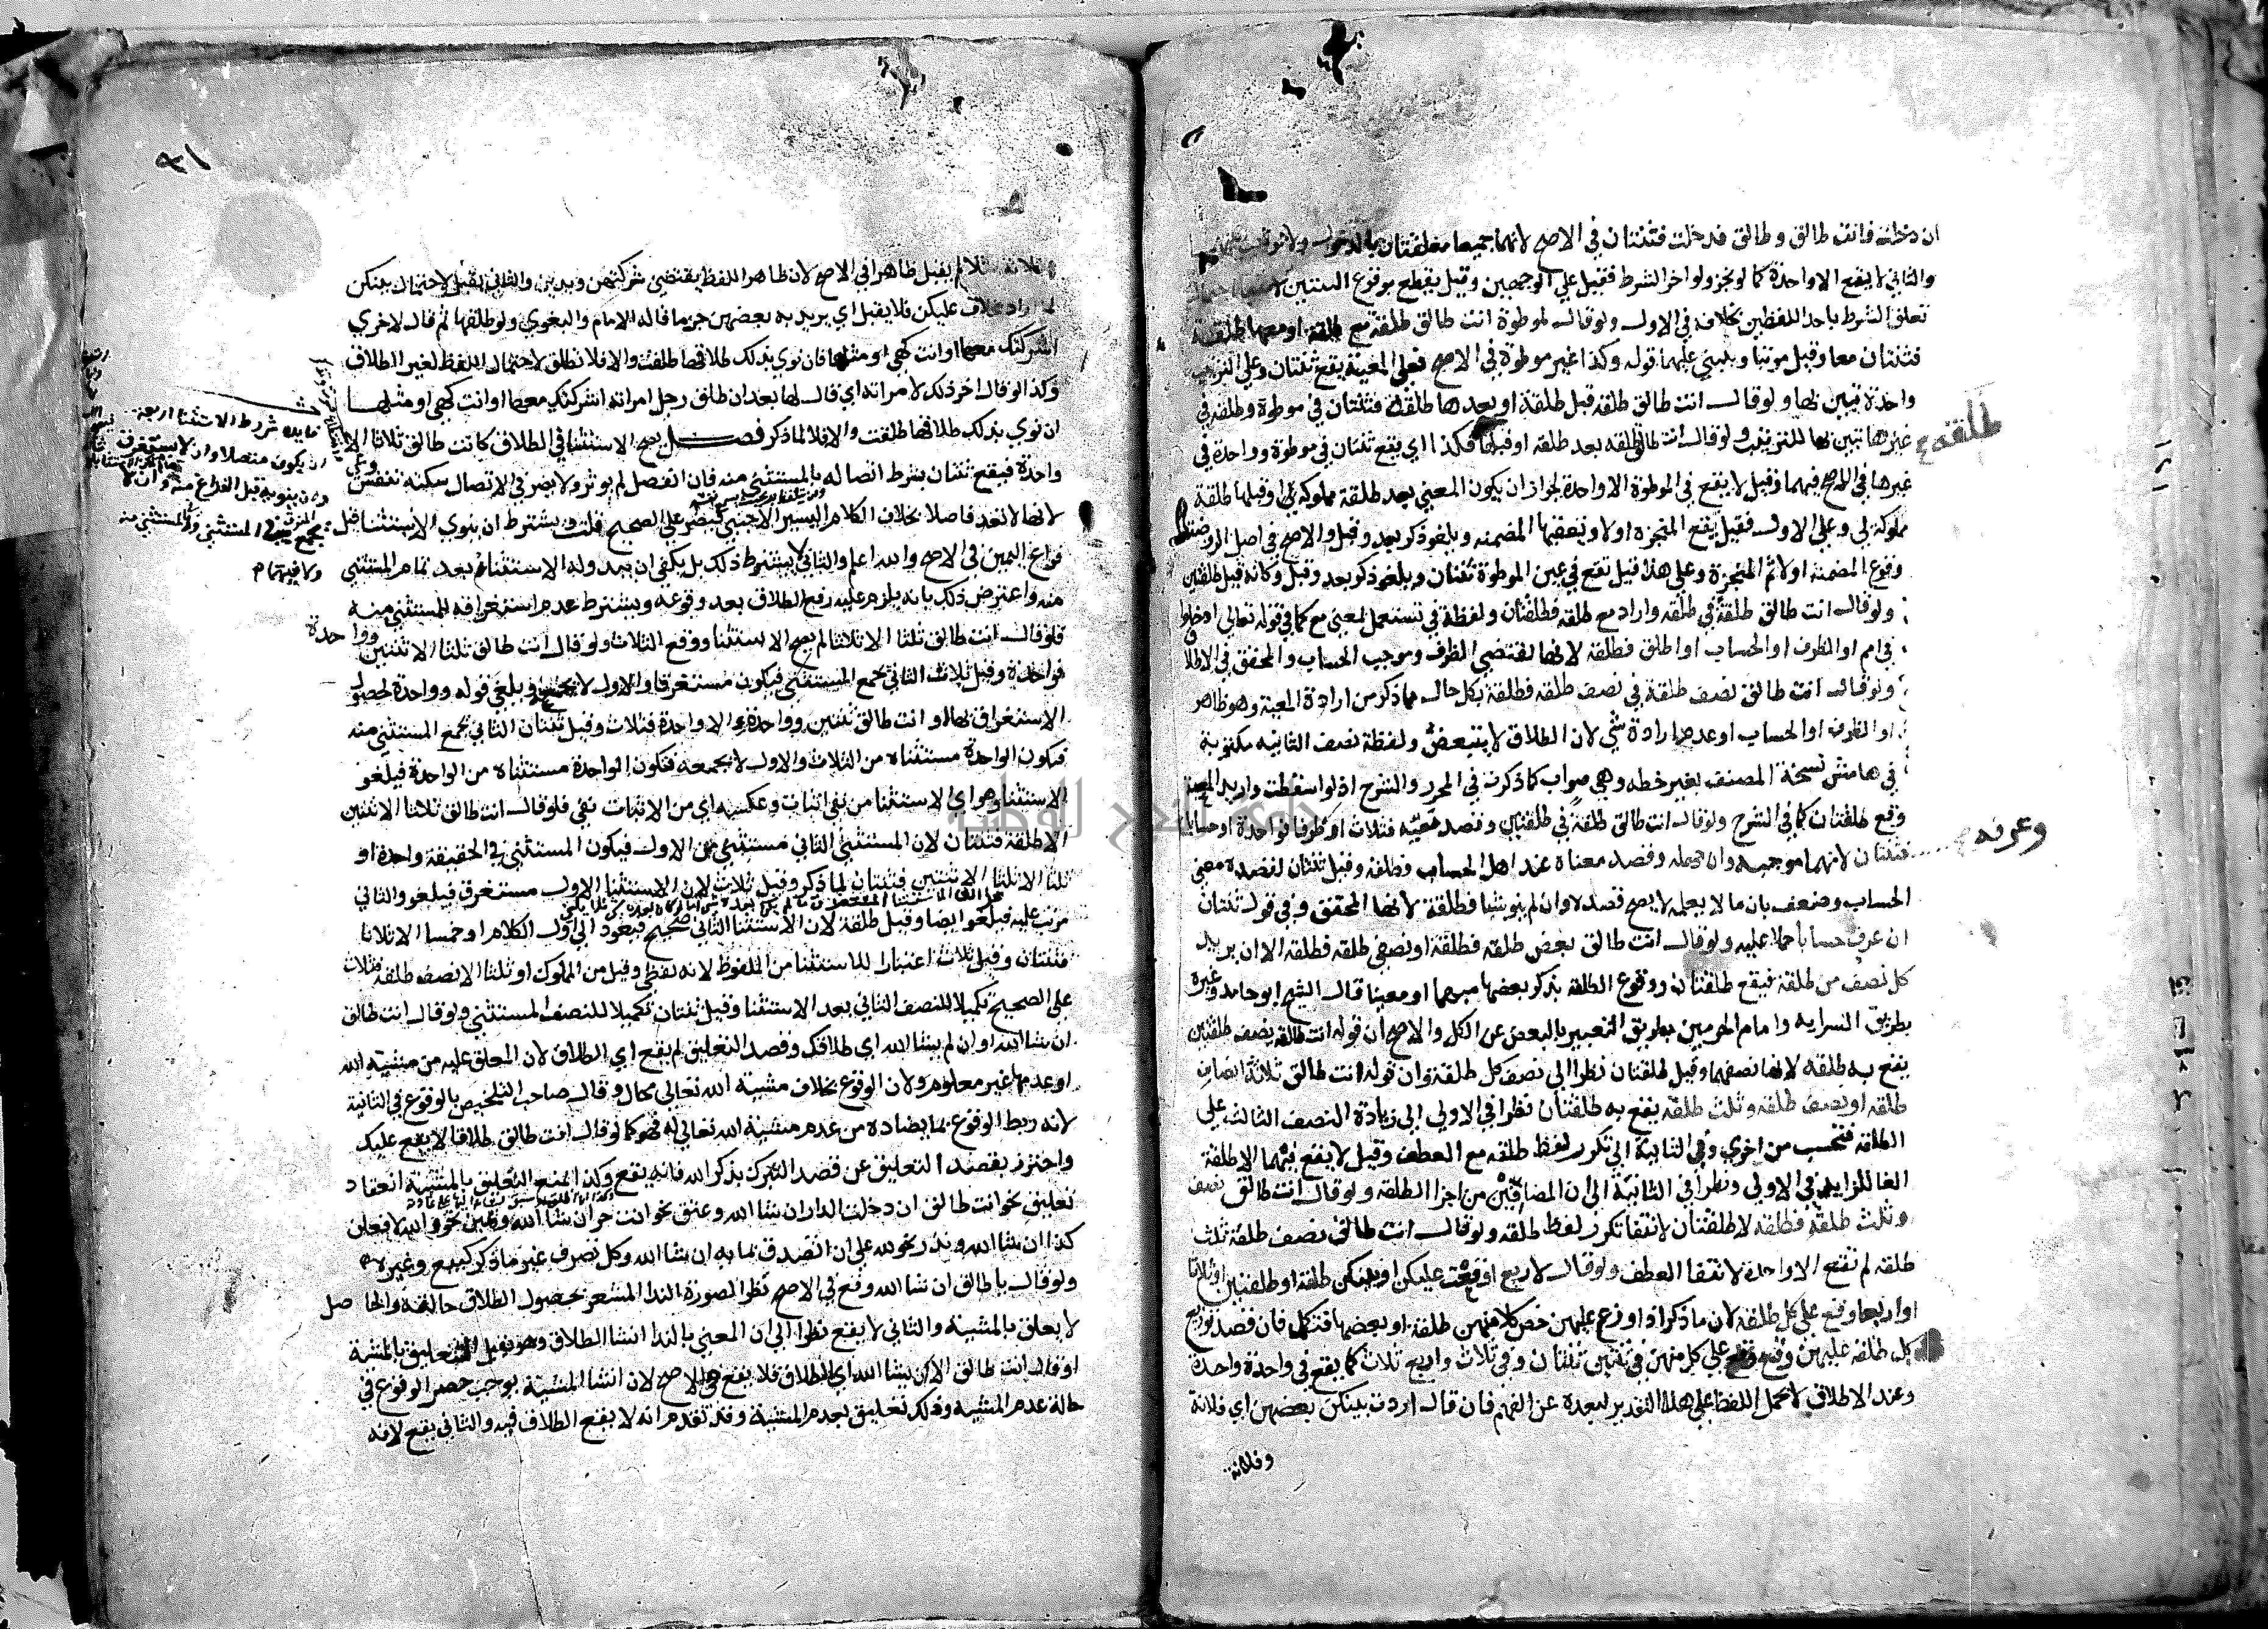 ان دخلت فانت طالق وطالق فدخلت فثنتان في الاصح لانهما جميعا معلقتان بالدخول ولا
والثاني لا يقع الا واحدة كما لو نجز ولو اخر الشرط فقيل علي الوجهين وقيل يقطع بوقوع الثنتين
تعلق الشرط باحد اللفظين بخلافه في الاول ولو قال لموطوة انت طالق طلقة مع طلقة او معها طلقة
فثنتان معا وقيل مرتبا ويبني عليهما قوله وكذا غير موطوة في الاصح فعلي المعية يقع ثنتان وعلي الترتيب
واحدة تبين بها ولو قال انت طالق طلقة قبل طلقة او بعدها طلقة فثنتان في موطوة وطلقة في
غيرها تبين بها للترتيب ولو قال انت طالق طلقه بعد طلقه او قبلها فكذا اي يقع ثنتان في موطوة وواحدة في
طلقه
غيرها في الاصح فيهما وقيل لا يقع في الموطوة الا واحدة لجواز ان يكون المعني بعد طلقة مملوكة لي او قبلها طلقة
مملوكة لي وعلي الاول فقيل يقع المنجزة اولا وتعقبها المضمنه ويلغو ذكر بعد وقبل والاصح في اصل الروضة
وقوع المضمنة اولا ثم المنجزة وعلي هذا قيل تقع في غير الموطوة ثنتان ويلغو ذكر بعد وقبل وكانه قيل طلقتين
ولو قال انت طالق طلقة في طلقه واراد مع طلقه فطلقتان ولفظة في تستعمل لمعني مع كما في قوله تعالي ادخلوا
في امم او الظرف او الحساب او اطلق فطلقه لانها مقتضي الظرف وموجب الحساب والمحقق في الاطلا
ولو قال انت طالق نصف طلقة في نصف طلقه فطلقة بكل حال مما ذكر من ارادة المعية وهو ظاهر
او الظرف او الحساب او عدم ارادة شي لان الطلاق لا يتبعض ولفظة نصف الثانيه مكتوبة
في هامش نسخة المصنف بغير خطه وهي صواب كما ذكرت في المحرر والشرح اذ لو اسقطت واريد المعية
وقع طلقتان كما في الشرح ولو قال انت طالق طلقة في طلقتين وقصد معية فثلاث او ظرفا فواحدة او حسابا
وعرفه
فثنتان لانهما موجبه وان جهله وقصد معناه عند اهل الحساب فطلقه وقيل ثنتان لقصده معني
الحساب وضعف بان ما لا يعلمه لا يصح قصده وان لم ينو شيا فطلقة لانها المحقق وفي قول ثنتان
ان عرف حسابا حملا عليه ولو قال انت طالق بعض طلقه فطلقة او نصفي طلقه فطلقه الا ان يريد
كل نصف من طلقة فيقع طلقتان ووقوع الطلقه بذكر بعضها مبهما او معينا قال الشيخ ابو حامد وغيره
بطريق السرايه وامام الحرمين بطريق التعبير بالبعض عن الكل والاصح ان قوله انت طالق نصف طلقتين
يقع به طلقه لانها نصفهما وقيل طلقتان نظرا الي نصف كل طلقة وان قوله انت طالق ثلاثة انصاف
طلقه او نصف طلقه وثلث طلقه يقع به طلقتان نظرا في الاولي الي زيادة النصف الثالث علي
الطلقه فتحسب من اخري وفي الثانية الي تكرر لفظ طلقه مع العطف وقيل لا يقع فيهما الا طلقة
الغا للزايد في الاولي ونظرا في الثانية الي ان المضافين من اجزا الطلقه ولو قال انت طالق نصف
وثلث طلقة فطلقه لا طلقتان لانتفا تكرر لفظ طلقه ولو قال انت طالق نصف طلقة ثلث
طلقه لم تقع الا واحدة لانتفا العطف ولو قال لاربع اوقعت عليكن او بينكن طلقة او طلقتين او ثلاثا
او اربعا وقع علي كل طلقه لان ما ذكر اذا وزع عليهن خص كلا منهن طلقه او بعضها فتكمل فان قصد توزيع
كل طلقه عليهن وقع علي كل منهن في ثنتين ثنتان وفي ثلاث واربع ثلاث كما يقع في واحدة واحدة
وعند الاطلاق لا يحمل اللفظ علي هذا التقدير لبعده عن الفهم فان قال اردت بينكن بعضهن اي فلانة
وفلانة
٩١
لم يقبل ظاهرا في الاصح لان ظاهر اللفظ يقتضي شركتهن ويدين والثاني يقبل لاحتمال بينكن
عليكن فلا يقبل اي يريد به بعضهن جزما قاله الامام والبغوي ولو طلقها ثم قال لاخري
اشركتك معها او انت كهي او مثلها فان نوي بذلك طلاقها طلقت والا فلا تطلق لاحتمال اللفظ لغير الطلاق
وكذا لو قال اخر ذلك لامراته اي قال لها بعد ان طلق رجل امراته اشركتك معها او انت كهي او مثلها
ان نوي بذلك طلاقها طلقت والا فلا لما ذكر فصل يصح الاستثنا في الطلاق كانت طالق ثلاثا الا
واحدة فيقع ثنتان بشرط اتصاله بالمستثني منه فان انفصل لم يوثر ولا يضر في الاتصال سكتة تنفس وعي
لانها لا تعد فاصلا بخلاف الكلام اليسير الاجنبي فيضر علي الصحيح قلت ويشترط ان ينوي الاستثنا قبل
فراغ اليمين في الاصح والله اعلم والثاني لا يشترط ذلك بل يكفي ان يبدو له الاستثنا بعد تمام المستثني
منه واعترض ذلك بانه يلزم عليه رفع الطلاق بعد وقوعه ويشترط عدم استغراقه المستثني منه
فلو قال انت طالق ثلثا الا ثلاثا لم يصح الاستثنا ووقع الثلاث ولو قال انت طالق ثلثا الا ثنتين وواحدة
فواحدة وقيل ثلاث الثاني يجمع المستثني فيكون مستغرقا والاول لا يجمعه بل يلغي قوله وواحدة لحصول
الاستغراق بها او انت طالق ثنتين وواحدة الا واحدة فثلاث وقيل ثنتان الثاني يجمع المستثني منه
فتكون الواحدة مستثناه من الثلاث والاول لا يجمعه فتكون الواحدة مستثناه من الواحدة فيلغو
الاستثنا وهو اي الاستثنا من نفي اثبات وعكسه اي من الاثبات نفي فلو قال انت طالق ثلاثا الا ثنتين
الا طلقة فثنتان لان المستثني الثاني مستثني من الاول فيكون المستثني في الحقيقة واحدة او
ثلثا الا ثلثا الا ثنتين فثنتان لما ذكر وقيل ثلاث لان الاستثنا الاول مستغرق فيلغو والثاني
مرتب عليه فيلغو ايضا وقيل طلقة لان الاستثنا الثاني صحيح فيعود الي اول الكلام او خمسا الا ثلاثا
فثنتان وقيل ثلاث اعتبارا للاستثنا من الملفوظ لانه لفظي وقيل من المملوك او ثلثا الا نصف طلقه فثلاث
علي الصحيح تكميلا للنصف الثاني بعد الاستثنا وقيل ثنتان تكميلا للنصف المستثني ولو قال انت طالق
ان شا الله او ان لم يشا الله اي طلاقك وقصد التعليق لم يقع اي الطلاق لان المعلق عليه من مشية الله
او عدمها غير معلوم ولان الوقوع بخلاف مشية الله تعالي محال وقال صاحب التلخيص بالوقوع في الثانية
لانه ربط الوقوع بما يضاده من عدم مشية الله تعالي له فهو كما لو قال انت طالق طلاقا لا يقع عليك
واحترز بقصد التعليق عن قصد التبرك بذكر الله فانه يقع وكذا يمنع التعليق بالمشية انعقاد
تعليق نحو انت طالق ان دخلت الدار ان شا الله وعتق نحو انت حر ان شا الله ويمين نحو والله لافعلن
كذا ان شا الله ونذر نحو لله علي ان اتصدق بمايه ان شا الله وكل تصرف غير ما ذكر كبيع وغيره
ولو قال يا طالق ان شا الله وقع في الاصح نظرا لصورة الندا المشعر بحصول الطلاق حالته والحاصل
لا يعلق بالمشية والثاني لا يقع نظرا الي ان المعني بالندا انشا الطلاق وهو يقبل التعليق بالمشية
او قال انت طالق الا ان يشا الله اي الطلاق فلا يقع في الاصح لان استثنا المشية يوجب حصر الوقوع في
حالة عدم المشية وذلك تعليق بعدم المشية وقد تقدم انه لا يقع الطلاق فيه والثاني يقع لانه
فايده شروط الاستثنا اربعة
ان يكون متصلا وان لا يستغرق
وان ينويه قبل الفراغ منه وان لا
يجمع المستثني ولا المستثني منه
ولا فيهما م